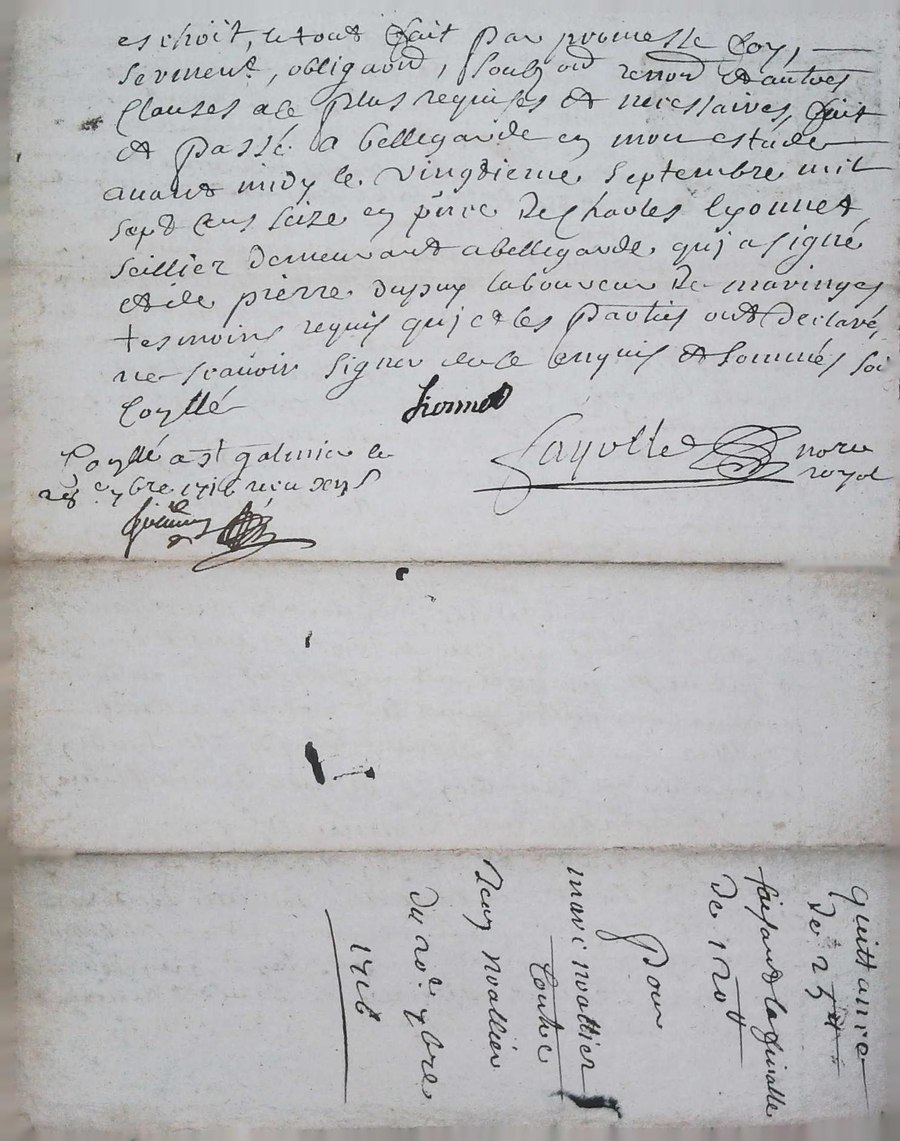 eschoit, le tout fait par promesse foy,
serment, obligaon, soubz on renon et autres
clauses a ce plus requises et necessaires, fait
et passé a bellegarde en mon estude
avant midy le vingtieme septembre mil
sept cens seize en pnce de Charles Lyonnet
seillier demeurant a bellegarde qui a signé
et de pierre dupuy laboureur de maringes
tesmoins requis qui et les parties ont declaré
ne scavoir signer de ce enquis et sommés soi
Coyllé
Lionnet
Fayolle nore
royal
Coyllé a st galmier le
28e 7bre 1716 receu
quittance
de 25 ₶
faisant la finalle
de 120 ₶
pour
marc noallier
Contre
Jeny noallier
du 20e 7bre
1716